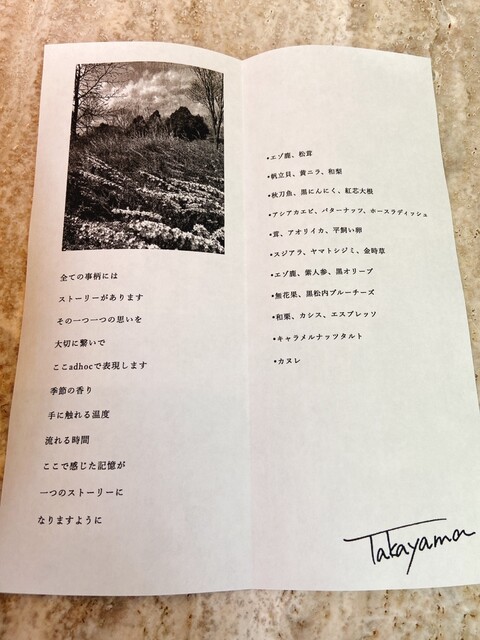 全ての事柄には
ストーリーがあります
その一つ一つの思いを
大切に繋いで
ここadhocで表現します
季節の香り
手に触れる温度
流れる時間
ここで感じた記憶が
一つのストーリーに
なりますように
•エゾ鹿、松茸
•帆立貝、黄ニラ、和梨
•秋刀魚、黒にんにく、紅芯大根
•アシアカエビ、バターナッツ、ホースラディッシュ
•茸、アオリイカ、平飼い卵
•スジアラ、ヤマトシジミ、金時草
•エゾ鹿、紫人参、黒オリーブ
•無花果、黒松内ブルーチーズ
•和栗、カシス、エスプレッソ
•キャラメルナッツタルト
•カヌレ
Takayama